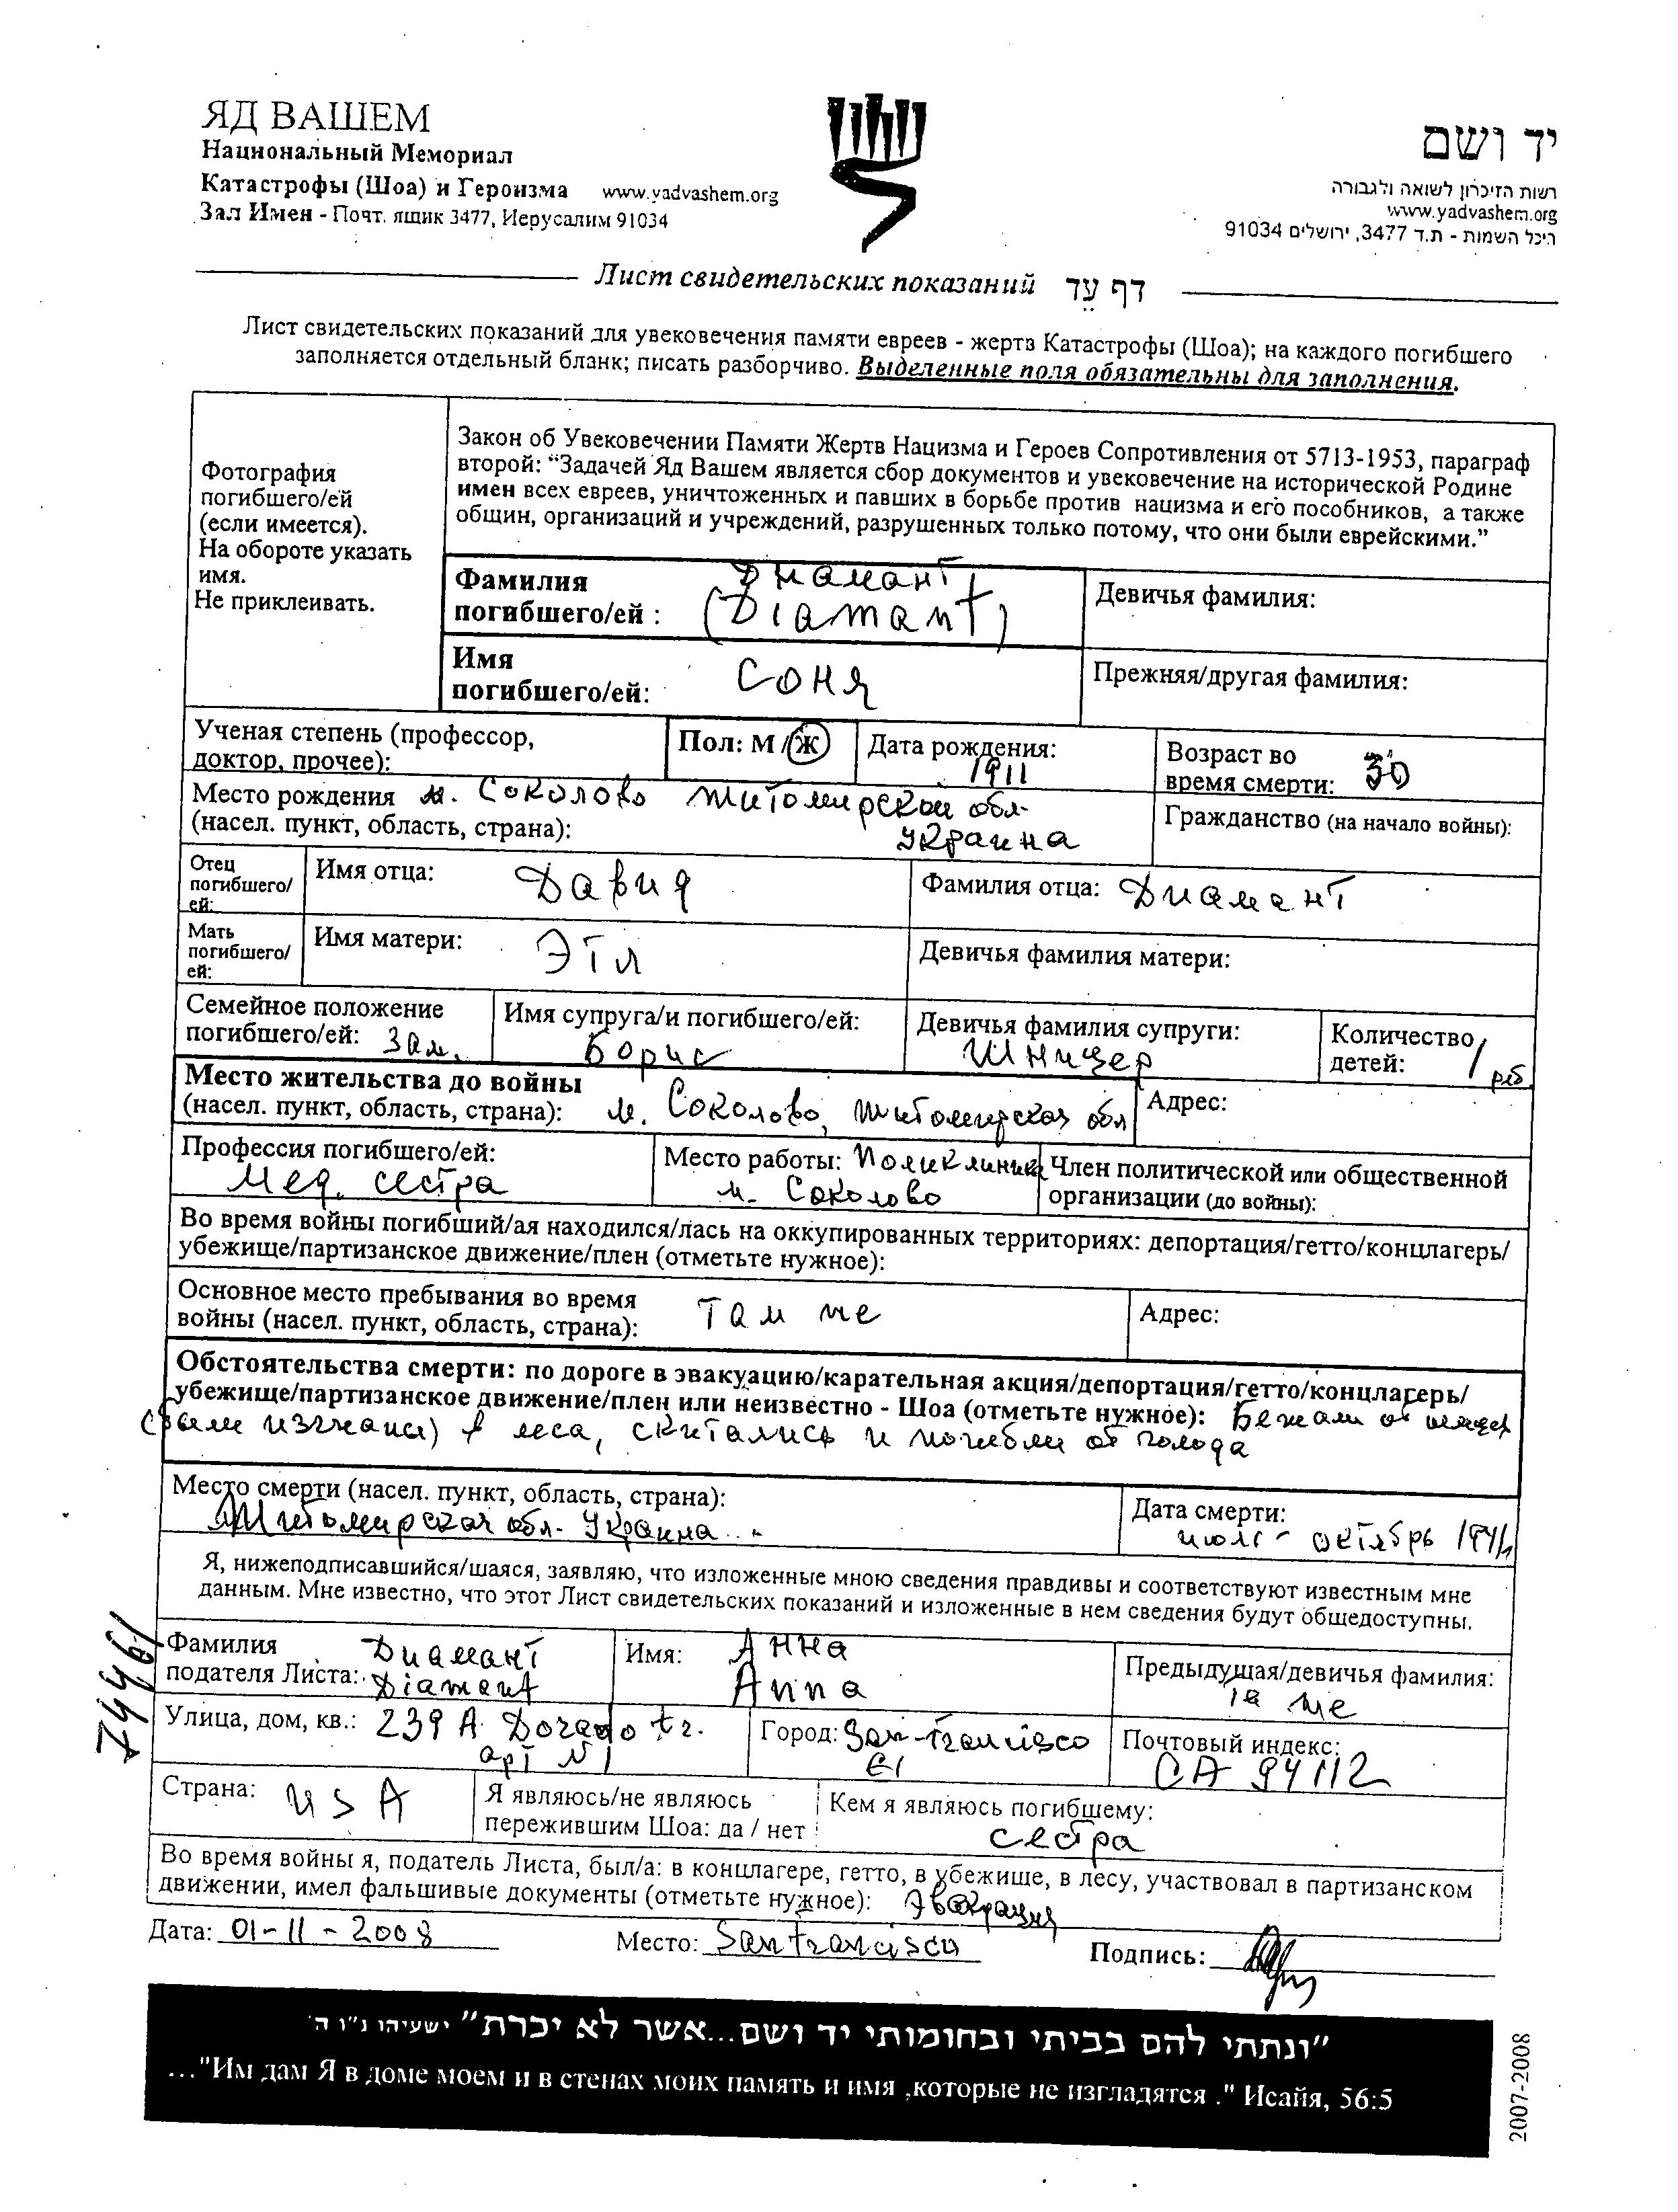 ЯД ВАШЕМ
Национальный Мемориал
Катастрофы (Шоа) и Героизма www.yadvashem.org
Зал Имен - Почт. ящик 3477, Иерусалим 91034
יד ושם
רשות הזיכרון לשואה ולגבורה
www.yadvashem.org
היכל השמות - ת.ד 3477, ירושלים 91034
Лист свидетельских показаний דף עֵד
Лист свидетельских показаний для увековечения памяти евреев - жертв Катастрофы (Шоа); на каждого погибшего
заполняется отдельный бланк; писать разборчиво. Выделенные поля обязательны для заполнения.
Фотография
погибшего/ей
(если имеется).
На обороте указать
имя.
Не приклеивать.
Закон об Увековечении Памяти Жертв Нацизма и Героев Сопротивления от 5713-1953, параграф
второй: “Задачей Яд Вашем является сбор документов и увековечение на исторической Родине
имен всех евреев, уничтоженных и павших в борьбе против нацизма и его пособников, а также
общин, организаций и учреждений, разрушенных только потому, что они были еврейскими.”
Фамилия
погибшего/ей :
Диамант
(Diamant)
Девичья фамилия:
Имя
погибшего/ей: Соня
Прежняя/другая фамилия:
Ученая степень (профессор,
доктор, прочее):
Пол: М / Ж
Дата рождения:
1911
Возраст во
время смерти: 30
Место рождения м. Соколово Житомирской обл-
(насел. пункт, область, страна): Украина
Гражданство (на начало войны):
Отец
погибшего/
ей:
Имя отца: Давид
Фамилия отца: Диамант
Мать
погибшего/
ей:
Имя матери: Этл
Девичья фамилия матери:
Семейное положение
погибшего/ей: Зам.
Имя супруга/и погибшего/ей:
Борис
Девичья фамилия супруги:
Шницер
Количество
детей: 1 реб.
Место жительства до войны
(насел. пункт, область, страна): м. Соколово, Житомирская обл
Адрес:
Профессия погибшего/ей:
Мед. сестра
Место работы: Поликлиника
м. Соколово
Член политической или общественной
организации (до войны):
Во время войны погибший/ая находился/лась на оккупированных территориях: депортация/гетто/концлагерь/
убежище/партизанское движение/плен (отметьте нужное):
Основное место пребывания во время
войны (насел. пункт, область, страна): Там же
Адрес:
Обстоятельства смерти: по дороге в эвакуацию/карательная акция/депортация/гетто/концлагерь/
убежище/партизанское движение/плен или неизвестно - Шоа (отметьте нужное): Бежали от
(были изгнаны) в леса, скитались и погибли от голода
Место смерти (насел. пункт, область, страна):
Житомирская обл- Украина
Дата смерти:
июль - октябрь 1941
Я, нижеподписавшийся/шаяся, заявляю, что изложенные мною сведения правдивы и соответствуют известным мне
данным. Мне известно, что этот Лист свидетельских показаний и изложенные в нем сведения будут общедоступны.
Фамилия
подателя Листа:
Диамант
Diamant
Имя: Анна
Anna
Предыдущая/девичья фамилия:
та же
Улица, дом, кв.: 239 A Dorado tr.
apt N1
Город: San-Francisco
Почтовый индекс:
CA 94112
Страна: USA
Я являюсь/не являюсь
пережившим Шоа: да / нет
Кем я являюсь погибшему:
сестра
Во время войны я, податель Листа, был/а: в концлагере, гетто, в убежище, в лесу, участвовал в партизанском
движении, имел фальшивые документы (отметьте нужное): Эвакуация
Дата: 01-11-2008
Место: San Francisco
Подпись:
"ונתתי להם בביתי ובחומותי יד ושם...אשר לא יכרת" ישעיהו נ"ו ה'
..."Им дам Я в доме моем и в стенах моих память и имя ,которые не изгладятся ." Исайя, 56:5
2007-2008